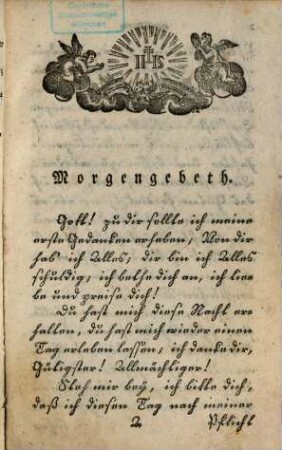 Bayerische
Staatsbibliothek
München
IHS
Morgengebeth.
Gott! zu dir sollte ich meine
erste Gedanken erheben; Von dir
hab' ich Alles, dir bin ich Alles
schuldig, ich bethe dich an, ich lie=
be und preise dich!
Du hast mich diese Nacht er=
halten, du hast mich wieder einen
Tag erleben lassen; ich danke dir,
Gütigster! Allmächtiger!
Steh mir bey, ich bitte dich,
daß ich diesen Tag nach meiner
2 Pflicht